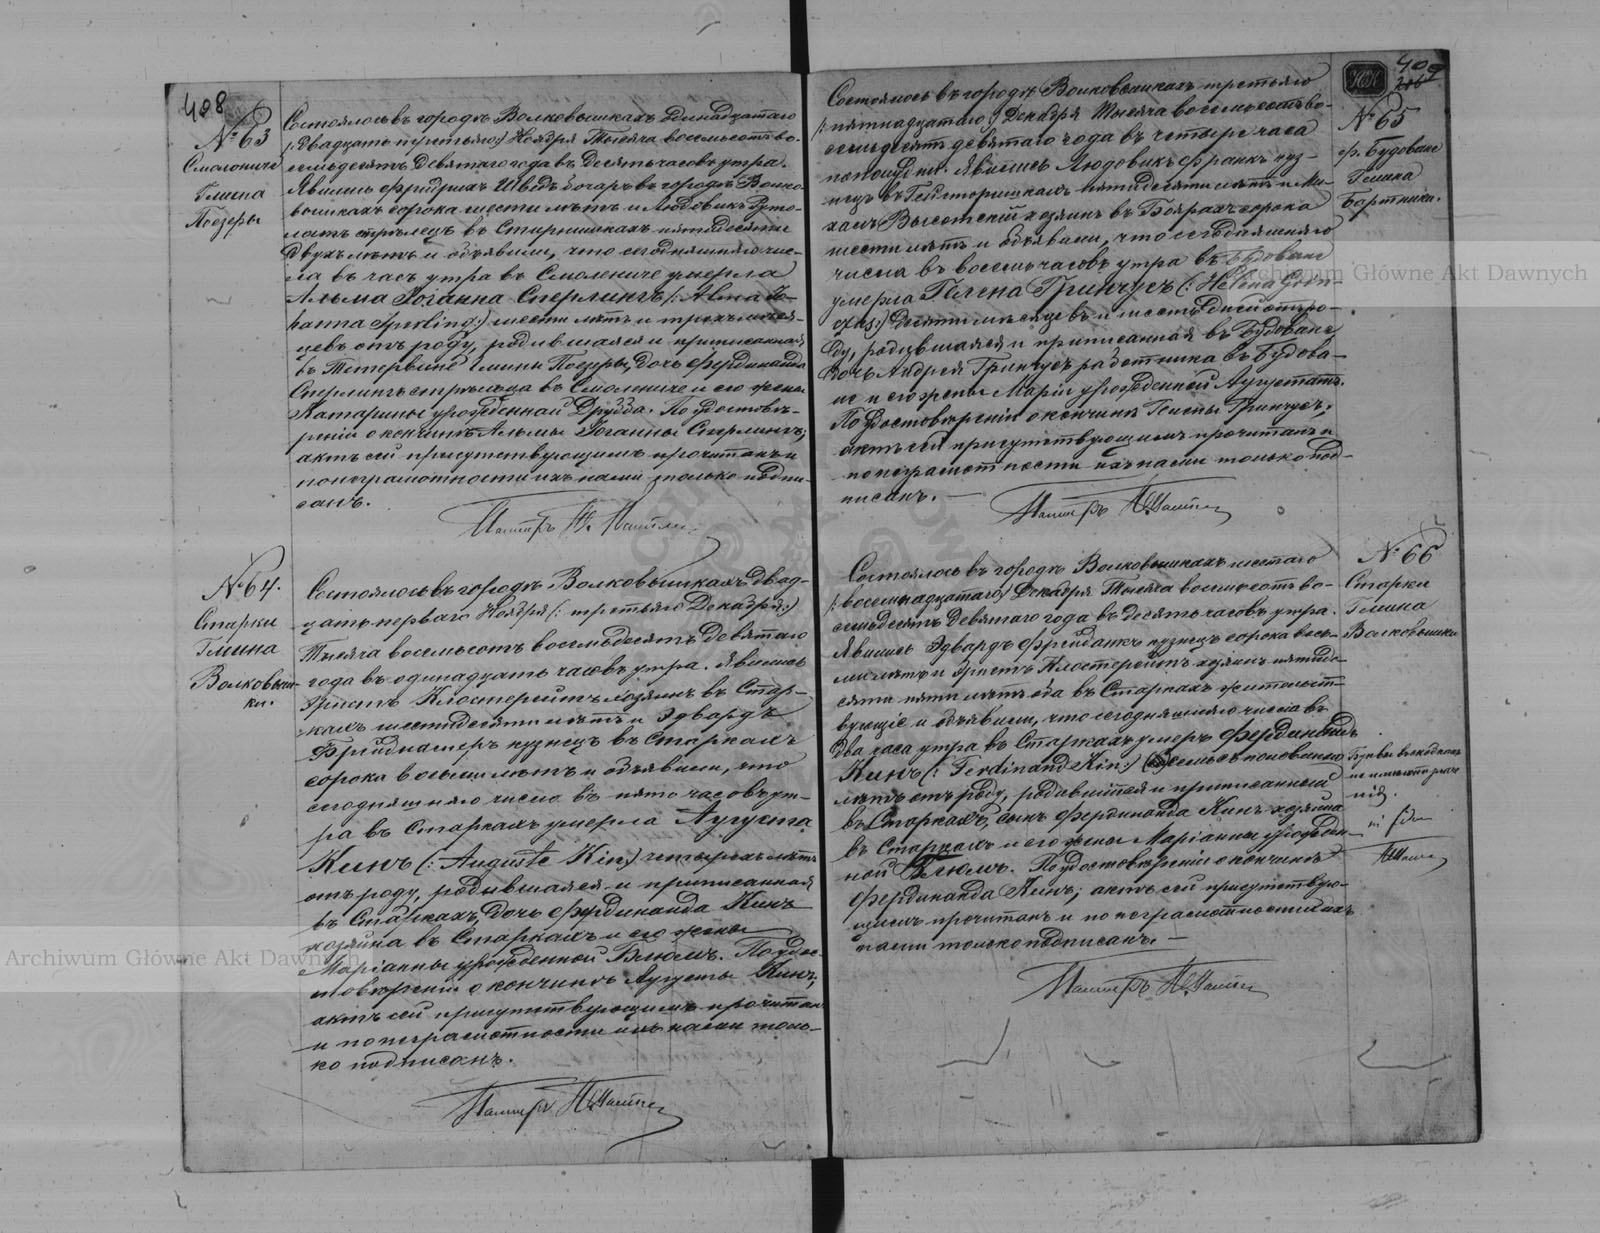 408
№ 63
Смолениче
Гмина
Поезеры
Состоялось въ городѣ Волковышкахъ Одинадцатаго
(:двадцать третьяго:) Ноября Тысяча восемьсотъ во-
семьдесятъ девятаго года въ десять часовъ утра.
Явились Фридрихъ Шведъ богаръ въ городѣ Волко-
вышкахъ сорока шести лѣтъ и Людовикъ
стрѣлецъ въ пятидесяти
двухъ лѣтъ и объявили, что сегодняшняго чис-
ла въ часъ утра въ Смолениче умерла
Альма Іоганна Сперлингъ (: Alma Jo-
hanna Sperling:) шести лѣтъ и трехъ мѣся-
цевъ отъ роду, родившаяся и приписанная
въ Тетервине Гмины Поезеры, дочь Фердинанда
Сперлингъ стрѣльца въ Смолениче и его жены
Катарины урожденной Друзда. По удостовѣ-
реніи о кончинѣ Альмы Іоганны Сперлингъ,
актъ сей присутствующимъ прочитанъ и
по неграмотности ихъ нами только подпи-
санъ.
Пасторъ
№ 64.
Старки
Гмина
Волковыш-
ки.
Состоялось въ городѣ Волковышкахъ двад-
цать перваго Ноября (: третьяго Декабря:)
Тысяча восемьсотъ восемьдесятъ девятаго
года въ одинадцать часовъ утра. Явились
Эрнстъ Клостерейтъ хозяинъ въ Стар-
кахъ шестидесяти лѣтъ и Эдвардъ
кузнецъ въ Старкахъ
сорока восьми лѣтъ и объявили, что
сегодняшняго числа въ пять часовъ ут-
ра въ Старкахъ умерла Аугуста
Кинъ (: Auguste Kin:) четырехъ лѣтъ
отъ роду, родившаяся и приписанная
въ Старкахъ, дочь Фердинанда Кинъ
хозяина въ Старкахъ и его жены
Маріанны урожденной Блюмъ. По удос-
товѣреніи о кончинѣ Аугусты Кинъ,
актъ сей присутствующимъ прочитанъ
и по неграмотности ихъ нами толь-
ко подписанъ.
Пасторъ
409
№ 65
Ф. Будоване
Гмина
Бартники.
Состоялось въ городѣ Волковышкахъ третьяго
(:пятнадцатаго:) Декабря Тысяча восемьсотъ во-
семьдесятъ девятаго года въ четыре часа
пополудни. Явились Людовикъ Франкъ куз-
нецъ въ пятидесяти лѣтъ и Ми-
хаилъ Высотскій хозяинъ въ Боярахъ сорока
шести лѣтъ и объявили, что сегодняшняго
числа въ восемь часовъ утра въ Будоване
умерла Гелена Гринчусъ (: Helena Grin-
czus:) десяти мѣсяцевъ и шесть дней отъ ро-
ду, родившаяся и приписанная въ Будоване
дочь Андрея Гринчусъ работника въ Будова-
не и его жены Маріи урожденной Аугустатъ.
По удостовѣреніи о кончинѣ Гелены Гринчусъ,
актъ сей присутствующимъ прочитанъ и
по неграмотности ихъ нами только под-
писанъ. —
Пасторъ
№ 66
Старки
Гмина
Волковышки
Состоялось въ городѣ Волковышкахъ шестаго
(:восемнадцатаго:) Декабря Тысяча восемьсотъ во-
семьдесятъ девятаго года въ десять часовъ утра.
Явились Эдвардъ Фрейданкъ кузнецъ сорока вось-
ми лѣтъ и Эрнстъ Клостерейтъ хозяинъ пятиде-
сяти пяти лѣтъ оба въ Старкахъ жительст-
вующіе и объявили, что сегодняшняго числа въ
два часа утра въ Старкахъ умеръ Фердинандъ
Кинъ (: Ferdinand Kin:) семь съ половиною
лѣтъ отъ роду, родившійся и приписанный
въ Старкахъ, сынъ Фердинанда Кинъ хозяина
въ Старкахъ и его жены Маріанны урожден-
ной Блюмъ. По удостовѣреніи о кончинѣ
Фердинанда Кинъ, актъ сей присутствую-
щимъ прочитанъ и по неграмотности ихъ
нами только подписанъ. —
Пасторъ
Archiwum Główne Akt Dawnych
Archiwum Główne Akt Dawnych